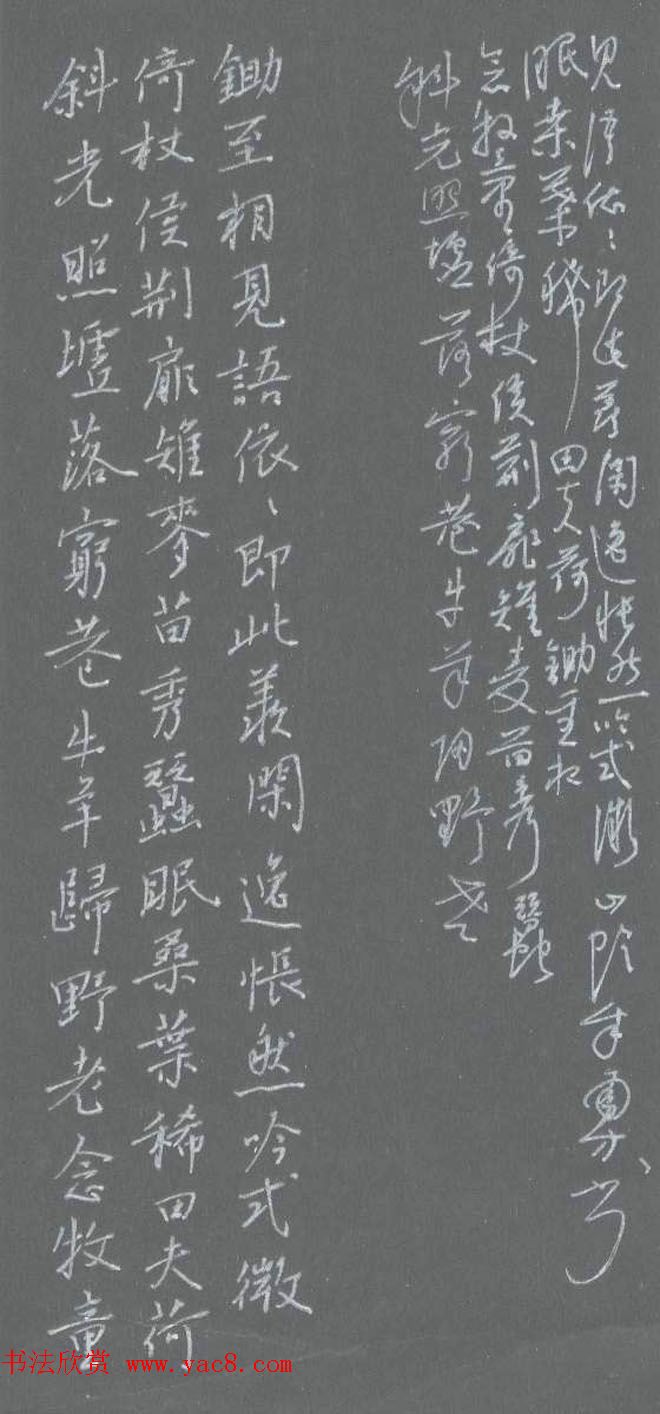 斜光照墟落窮巷牛羊歸野老念牧童
倚杖候荆扉雉麥苗秀蠶眠桑葉稀田夫荷
鋤至相見語依〻即此羨閑逸悵然吟式微
斜光照墟落窮巷牛羊歸野老
念牧童倚杖候荆扉雉麦苗秀蠶
眠桑葉稀田夫荷鋤至相
見語依〻即此羨閑逸悵然吟式微山陰
书法欣赏 www.yac8.com